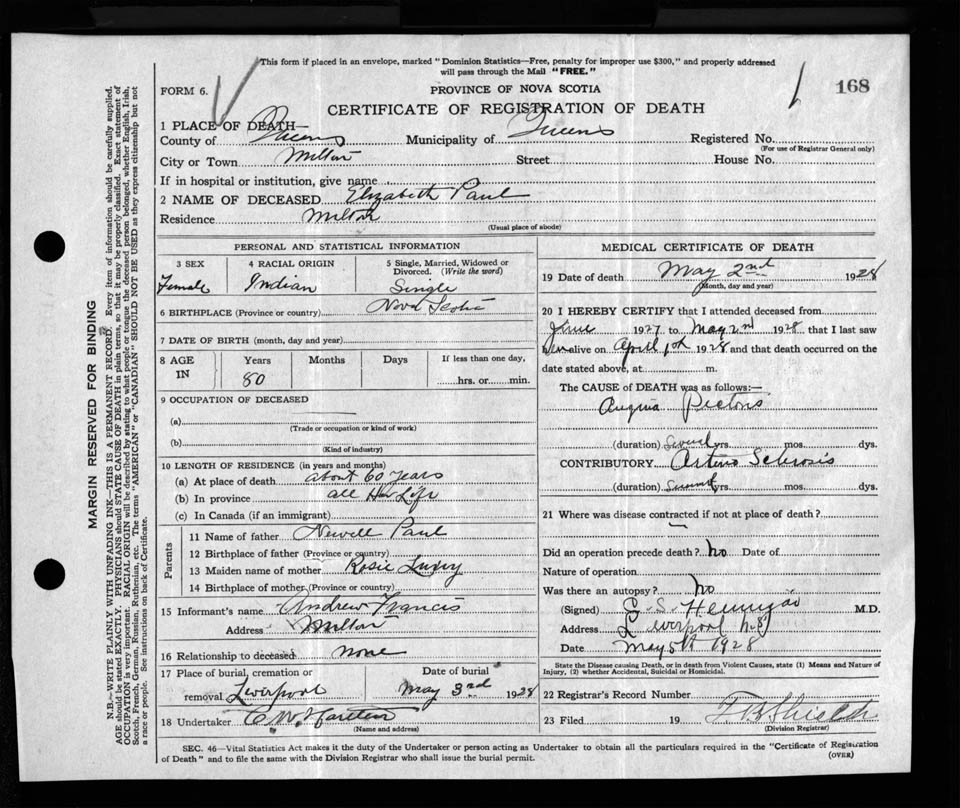 This form if placed in an envelope, marked "Dominion Statistics—Free, penalty for improper use $300," and properly addressed
will pass through the Mail "FREE."
FORM 6.
PROVINCE OF NOVA SCOTIA
168
CERTIFICATE OF REGISTRATION OF DEATH
1 PLACE OF DEATH—
County of Queens Municipality of Queens Registered No.
(For use of Registrar General only)
City or Town Milton Street House No.
If in hospital or institution, give name
2 NAME OF DECEASED Elizabeth Paul
Residence Milton
(Usual place of abode)
MARGIN RESERVED FOR BINDING
N.B.—WRITE PLAINLY WITH UNFADING INK—THIS IS A PERMANENT RECORD. Every item of information should be carefully supplied.
AGE should be stated EXACTLY. PHYSICIANS should STATE CAUSE OF DEATH in plain terms, so that it may be properly classified. Exact statement of
OCCUPATION is very important. RACIAL ORIGIN will be described by stating to what people or tongue the deceased person belonged, whether English, Irish,
Scotch, French, German, Russian, Ruthenian, etc. The terms "AMERICAN" or "CANADIAN" SHOULD NOT BE USED as they express citizenship but not
a race or people. See instructions on back of Certificate.
PERSONAL AND STATISTICAL INFORMATION
3 SEX
Female
4 RACIAL ORIGIN
Indian
5 Single, Married, Widowed or
Divorced. (Write the word)
Single
6 BIRTHPLACE (Province or country) Nova Scotia
7 DATE OF BIRTH (month, day and year)
8 AGE IN Years Months Days If less than one day,
80 hrs. or min.
9 OCCUPATION OF DECEASED
(a)
(Trade or occupation or kind of work)
(b)
(Kind of industry)
10 LENGTH OF RESIDENCE (in years and months)
(a) At place of death about 60 years
(b) In province all Her Life
(c) In Canada (if an immigrant)
Parents
11 Name of father Newell Paul
12 Birthplace of father (Province or country)
13 Maiden name of mother Rosie
14 Birthplace of mother (Province or country)
15 Informant's name Andrew Francis
Address Milton
16 Relationship to deceased none
17 Place of burial, cremation or Date of burial
removal Liverpool May 3rd 1928
18 Undertaker
(Name and address)
MEDICAL CERTIFICATE OF DEATH
19 Date of death May 2nd 1928
(Month, day and year)
20 I HEREBY CERTIFY that I attended deceased from
June 1927 to May 2nd 1928 that I last saw
her alive on April 1st 1928 and that death occurred on the
date stated above, at m.
The CAUSE of DEATH was as follows:—
Angina Pectoris
(duration) Several yrs. mos. dys.
CONTRIBUTORY Arterio Sclerosis
(duration) Several yrs. mos. dys.
21 Where was disease contracted if not at place of death?
Did an operation precede death? No Date of
Nature of operation
Was there an autopsy? No
(Signed) M.D.
Address Liverpool N.S.
Date May 5th 1928
State the Disease causing Death, or in death from Violent Causes, state (1) Means and Nature of
Injury, (2) whether Accidental, Suicidal or Homicidal.
22 Registrar's Record Number
23 Filed 19
(Division Registrar)
SEC. 46—Vital Statistics Act makes it the duty of the Undertaker or person acting as Undertaker to obtain all the particulars required in the "Certificate of Registration
of Death" and to file the same with the Division Registrar who shall issue the burial permit.
(OVER)